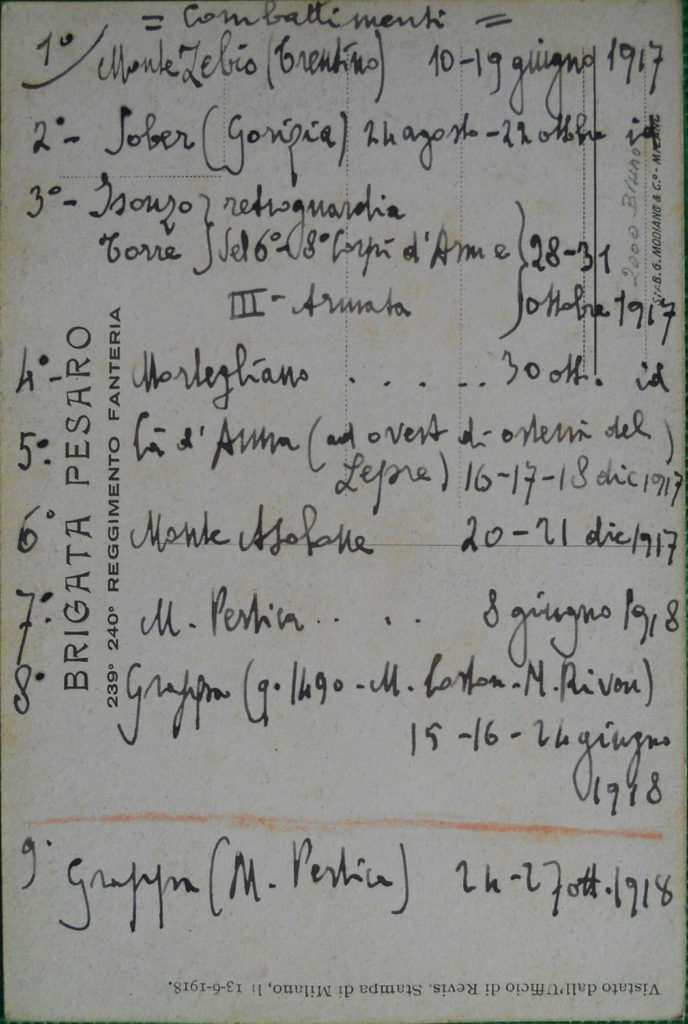 = Combattimenti =
1° Monte Zebio (Trentino) 10-19 giugno 1917
2°- Sober (Gorizia) 24 agosto - 22 ottobre id
3°- Isonzo } retroguardia
Torre } del 6°-8° Corpi d'Arme } 28-31
III- Armata } ottobre 1917
4°- Mortegliano . . . . . . 30 ott. id
5°. Cà d'Anna (ad ovest di osteria del
Lepre) 16-17-18 dic 1917
6° Monte Asolone 20-21 dic 1917
7°. M. Pertica . . . . 8 giugno 1918
8° Grappa (q. 1490 - M. Coston - M. Rivon)
15-16-24 giugno
1918
9° Grappa (M. Pertica) 24-27 ott. 1918
BRIGATA PESARO
239° 240° REGGIMENTO FANTERIA
2000 Bruno
STAB. G. MODIANO & C.° - MILANO
Vistato dall'Ufficio di Revis. Stampa di Milano, lì 13-6-1918.